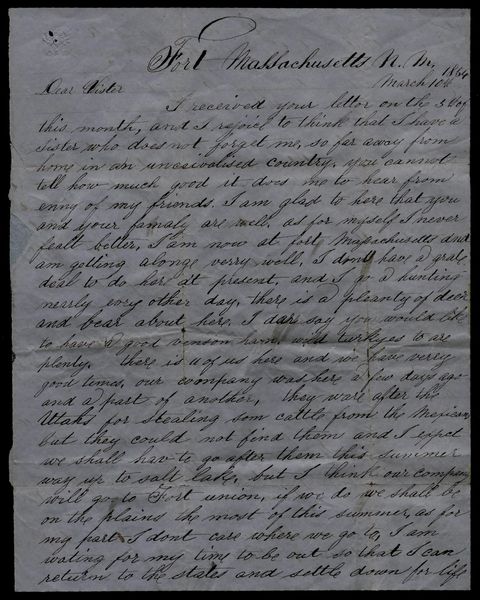 Fort Massachusetts N. M.
March 10th 1854
Dear Sister
I received your letter on the 3 of
this month, and I rejoice to think that I have a
sister who does not forget me, so far away from
home in an uncivalised country, you cannot
tell how much good it does me to hear from
enny of my friends. I am glad to here that you
and your famaly are well, as for myself I never
fealt better, I am now at fort Massachusetts and
am getting alonge verry well, I dont have a grate
deal to do her at present, and I go a hunting
nearly evry other day, there is a pleanty of deer
and bear about here, I dare say you would like
to have a good venson ham, wild turkyes to are
plenty. there is of us here and we have verry
good times, our coompany was here a few days ago
and a part of another, they ware after the
Utahs for stealing som cattle from the Mexicans
but they could not find them and I expct
we shall hav to go after them this summer
way up to salt lake, but I think our company
will go to Fort union, if we do we shall be
on the plains the most of this summer, as for
my part I dont care where we go to, I am
wating for my time to be out so that I can
return to the states and settle down for life